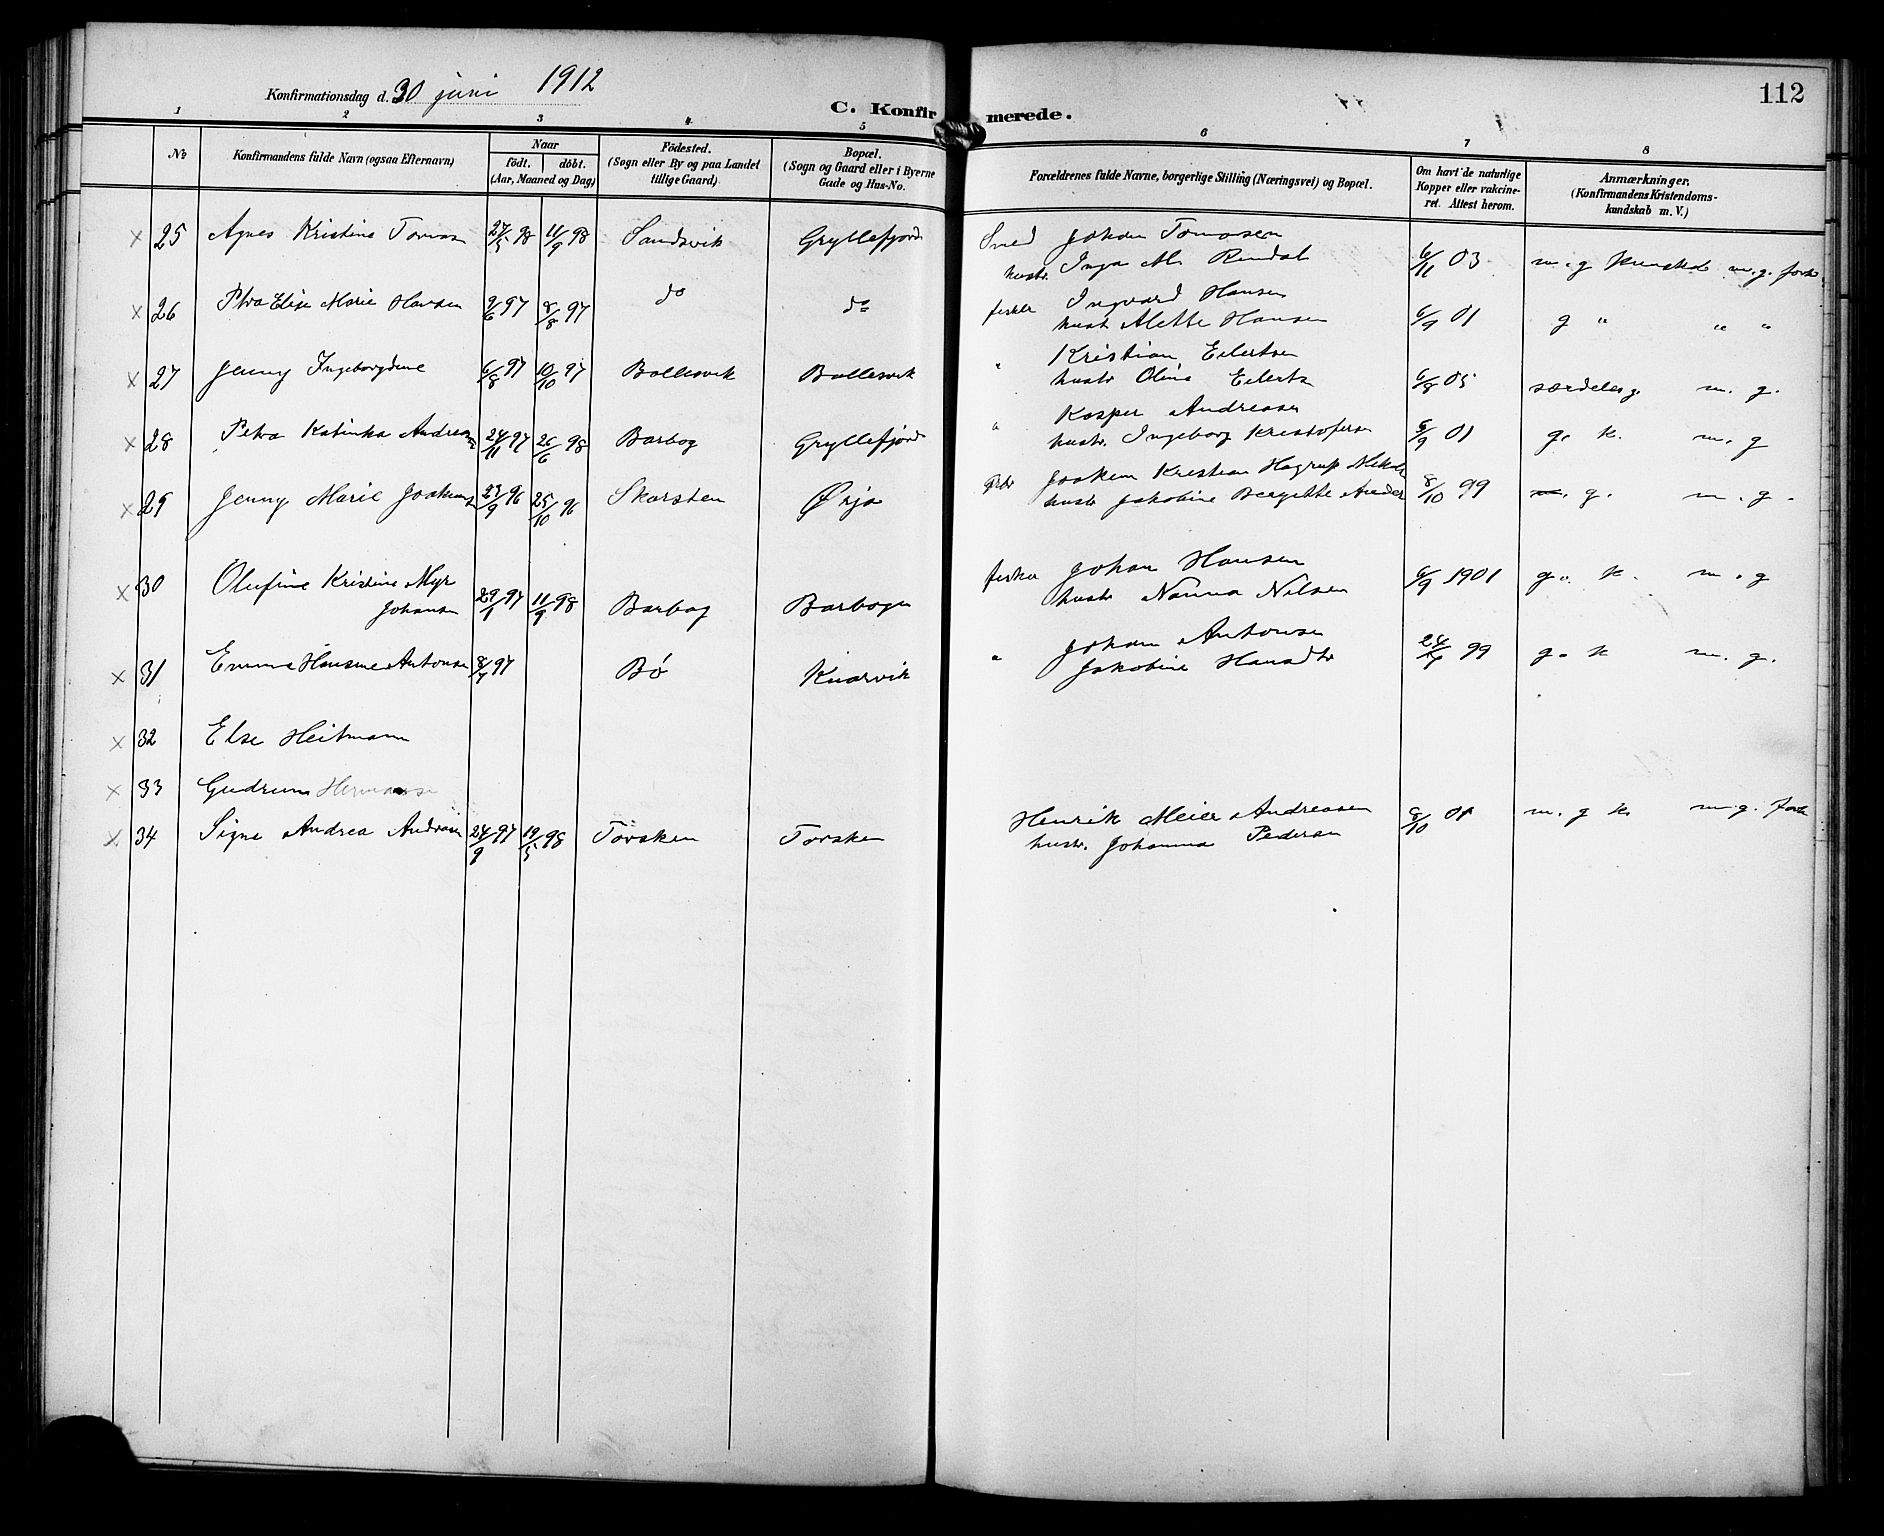 Konfirmationsdag d. 30 juni 1912
C. Konfirmerede.
112
1 2 3 4 5 6 7 8
No
Konfirmandens fulde Navn (ogsaa Efternavn)
Naar
født. døbt.
(Aar, Maaned og Dag)
Födested.
(Sogn eller By og paa Landet
tillige Gaard)
Bopæl.
(Sogn og Gaard eller i Byerne
Gade og Hus-No.
Forældrenes fulde Navne, borgerlige Stilling (Næringsvei) og Bopæl.
Om havt de naturlige
Kopper eller vakcine-
ret. Attest herom.
Anmærkninger.
(Konfirmandens Kristendoms-
kundskab m. V.)
x 25 Agnes Kristine Tomasen 27/5 98 11/9 98 Sandsvik Gryllefjord Smed Johan Tomasen
hustr. Inga M. Rindal 6/11 03 m. g kundskab m. g. forh
x 26 Petra Elise Marie Hansen 9/6 97 8/8 97 do do fisker Ingvard Hansen
hust Alette Hansen 6/9 01 g " " "
x 27 Jenny Ingeborgdine 6/8 97 10/10 97 Ballesvik Ballesvik " Kristian Eilertsen
hustr Oline Eilerts 6/8 05 særdeles g. m. g.
x 28 Petra Katinka Andreasen 24/11 97 26/6 98 Barbog Gryllefjord " Kasper Andreasen
hustr. Ingeborg Kristofersen 6/9 01 g. k. m. g
x 29 Jenny Marie Joakims 23/9 96 25/10 96 Skarsten Ørja Joakim Kristian Hagrup Nikols
hustr Jakobine Bergitte Anders 8/10 99 m. g. m. g.
x 30 Olufine Kristine Myr
Johansen 29/1 97 11/9 98 Barbog Barbogen fisker Johan Hansen
hustr Nanna Nilsen 6/9 1901 g. k. m. g
x 31 Emma Hansine Antonsen 8/7 97 Bø Knarvik " Johan Antonsen
Jakobine Hansdtr 99 g. k m. g.
x 32 Else Heitmann
x 33 Gudrun Hermansen
x 34 Signe Andrea Andreasen 24/9 97 19/5 98 Torsken Torsken Henrik Meier Andreasen
hustr. Johanna Pedersen 8/10 01 m. g k. m. g. forh